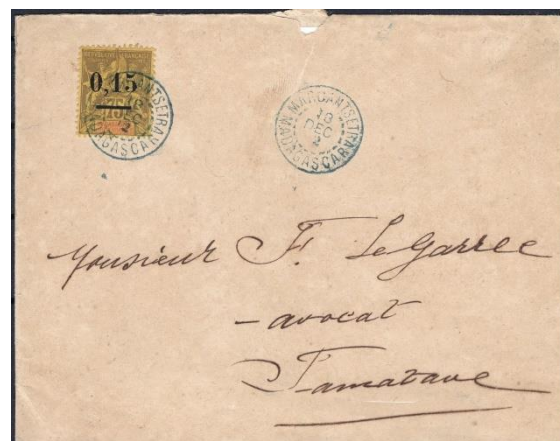 0,15
75
MAROANTSETRA
18
DEC
2
MADAGASCAR
Monsieur F. Le Garrec
- avocat
Tamatave